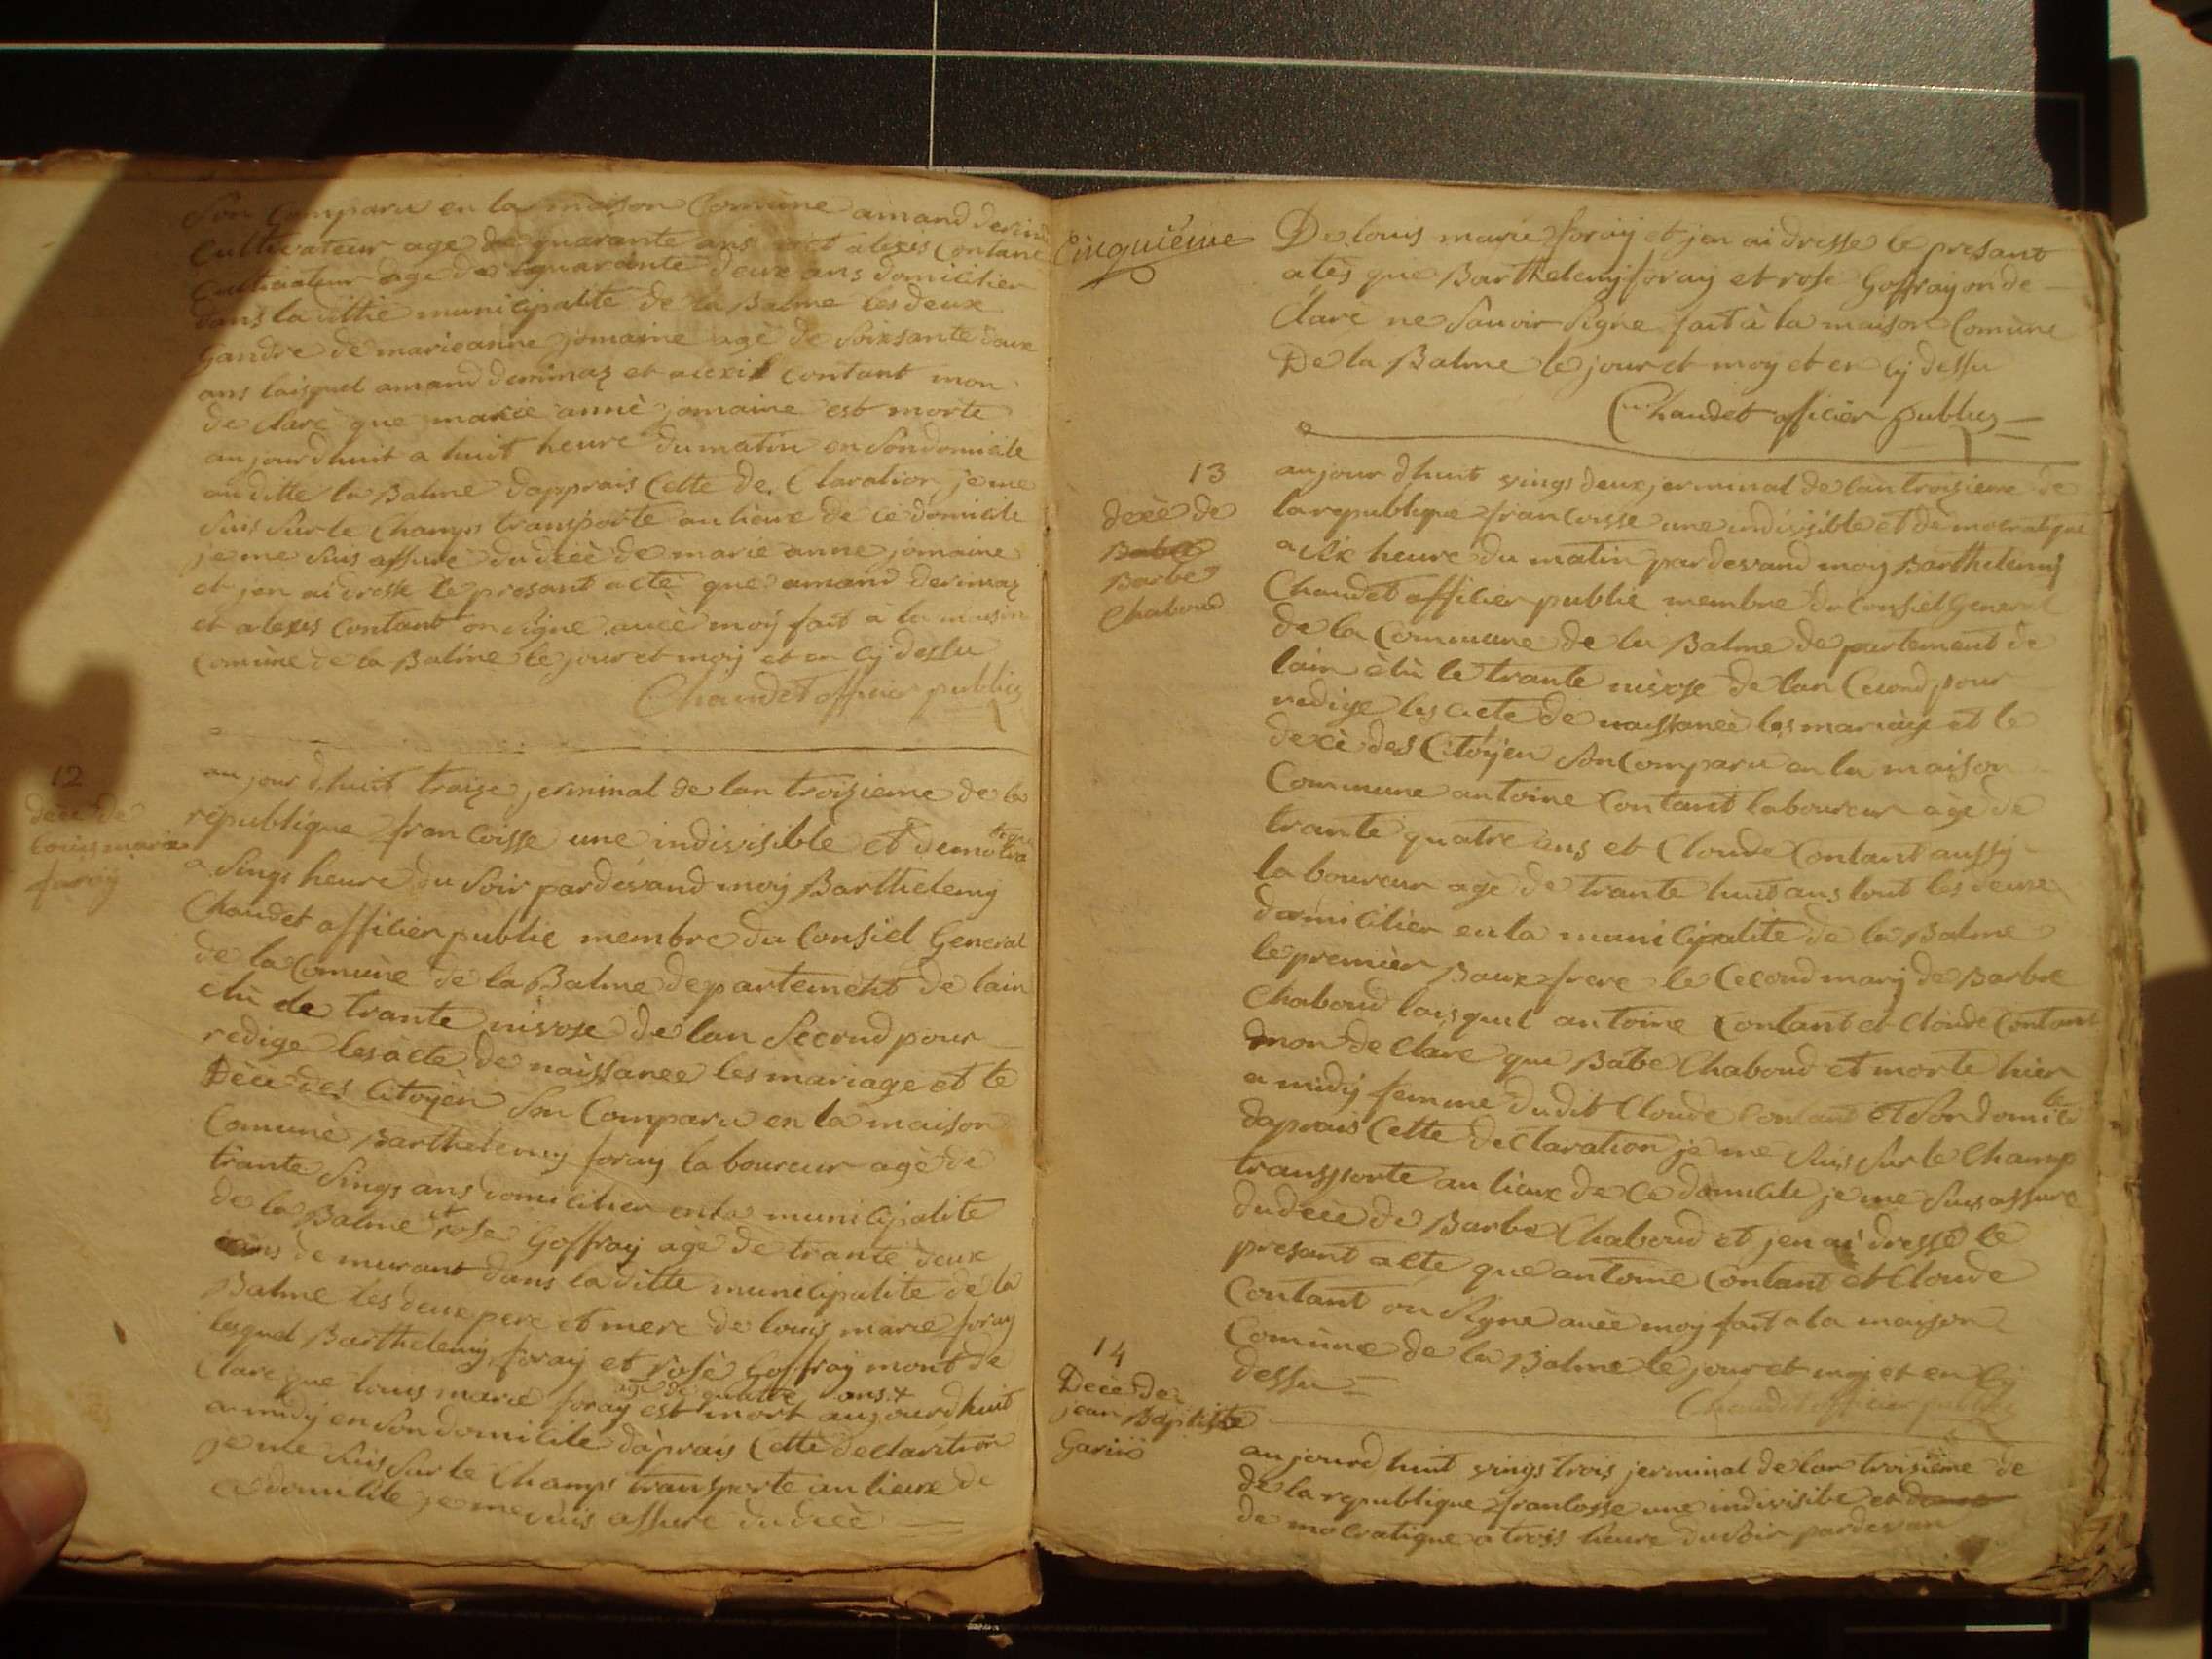 Son Comparu en la maison Comune amand derimaz
Cultivateur age de quarante ans et alexis Contant
Cultivateur age de quarante deux ans domicilier
dans la ditte municipalite de la Balme les deux
Gandre de marieanne jomaine age de Soixsante deux
ans laisquel amand derimaz et alexis Contant mon
de Clare que marie anne jomaine est morte
aujourdhuit a huit heure dumatin en Sondomicile
au ditte la Balme dapprais Cette de Claration jeme
Suis Surle Champs transporte au lieux de ce domicile
je me Suis assure du décè de marie anne jomaine
et jen ai dresse le presant acte que amand derimaz
et alexis Contant on Signe avec moy fait à la maison
Comune de la Balme le jour et moy et en Cy dessu
Chaudet officier publicq
12
décè de
louis marie
foray
aujourdhuit traize jerminal de lan troizieme de la
republique francoisse une indivisible et democratique
a Sings heure du Soir pardevand moy Barthelemy
Chaudet officier public membre du Consiel General
de la Comune de la Balme departement de lain
elû le trante nivose de lan Second pour
redige les acte de naissance les mariage et le
Décè des Citoyen Son Comparu en la maison
Comune Barthelemy foray laboureur age de
trante Sings ans domicilier enla municipalite
de la Balme et rose Goffray age de trante deux
ans de murant dans la ditte municipalite de la
Balme les deux pere et mere de louis marie foray
lesquel Barthelemy foray et rose Goffray mont de
Clare que louis marie foray age de quatre ans est mort aujourdhuit
a midy en Son domicile daprais Cette declaration
je me Suis Sur le Champs transporte au lieux de
ce domicile je me suis assure du décè
Cinquième
De louis marie foray et jen ai dresse le presant
atès que Barthelemy foray et rose Goffray on de
Clare ne Savoir Signe fait à la maison Comune
De la Balme le jour et moy et en Cy dessu
Chaudet officier publicq
13
decè de
Babe
Barbe
Chaboud
aujourdhuit vings deux jerminal de lan troizieme de
la republique francoisse une indivisible et democratique
a Six heure du matin pardevand moy Barthelemy
Chaudet officier public membre du Consiel General
de la Commune de la Balme departement de
lain élû le trante nivose de lan Cecond pour
redige les acte de naissance les mariage et le
decè des Citoyen Son Comparu en la maison
Commune antoine Contant laboureur age de
trante quatre ans et Cloude Contant aussy
laboureur age de trante huit ans tout les deux
domicilier en la municipalite de la Balme
le premier Baux frere le Cecond mary de Barbe
Chaboud laisquel antoine Contant et Cloude Contant
mon de Clare que Babe Chaboud et morte hier
a midy femme dudit Cloude Contant et Son domicile
daprais Cette declaration je me Suis Sur le Champ
transporte au lieux de Ce domicile je me Suis assure
du décè de Barbe Chaboud et jen ai dresse le
presant acte que antoine Contant et Cloude
Contant on Signe avec moy fait a la maison
Comune de la Balme le jour et moy et en Cy
dessu
Chaudet officier public
14
Decè de
jean Baptiste
aujourdhuit vings trois jerminal de lan troisième de
de la republique francosse une indivisible et
democratique a trois heure du Soir pardevan